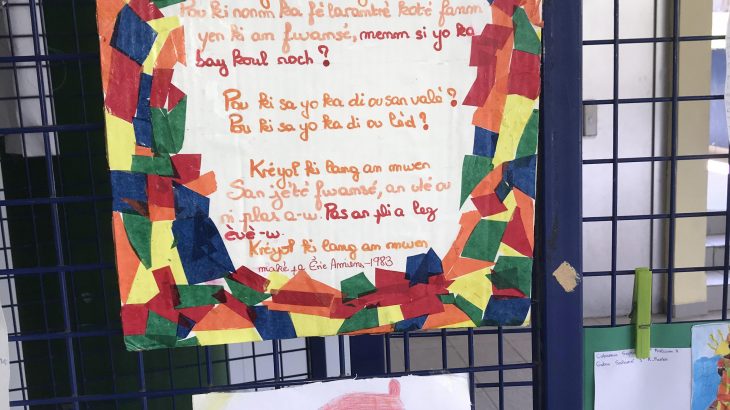 Pou ki nonm ka fè larantré koté fanm
yen ki an fwansé, menm si yo ka
bay koul roch ?
Pou ki sa yo ka di ou san valè ?
Pou ki sa yo ka di ou lèd ?
Kréyol ki lang an mwen
San jété fwansé, an vlé ou
ni plas a-w. Pas an pli a lez
èvè-w.
Kréyol ki lang an mwen
maké pa Éric 1983